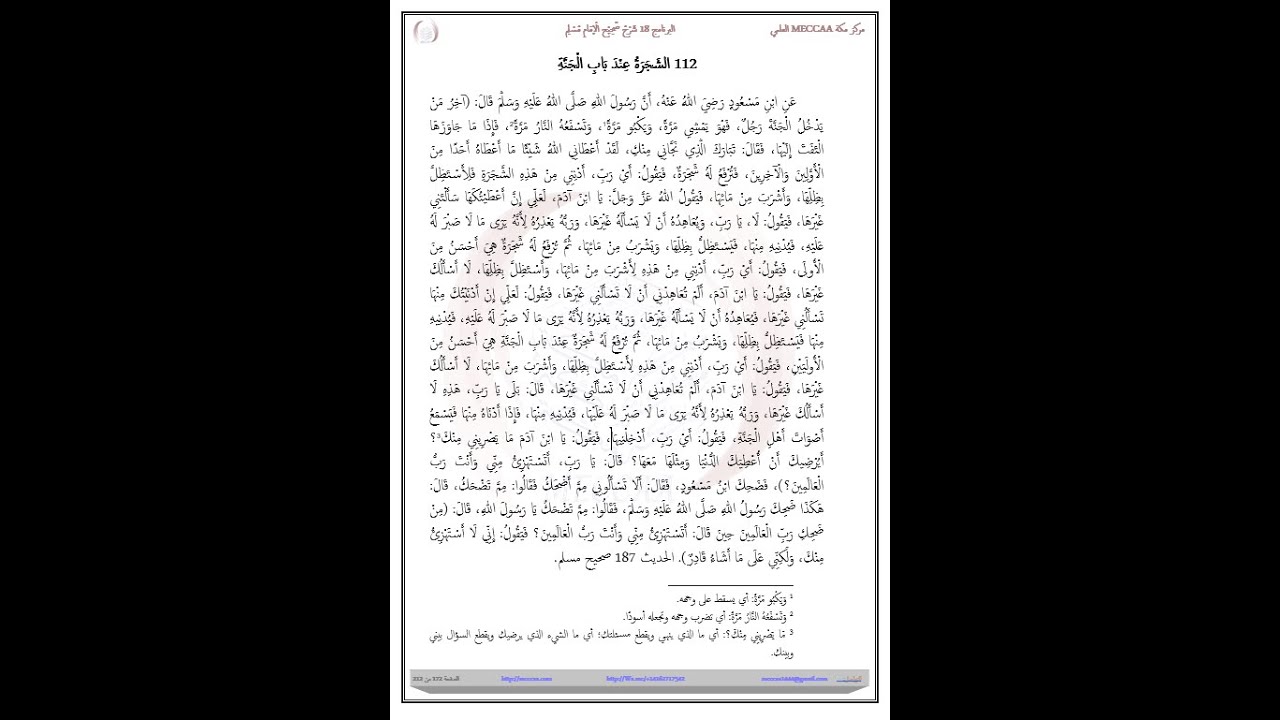 مركز مكة MECCAA العلمي البرنامج 18 شَرْحُ صَّحِيْحِ الْإِمَامِ مُسْلِمِ
112 الشَّجَرَةُ عِنْدَ بَابِ الْجَنَّةِ
عَنِ ابْنِ مَسْعُودٍ رَضِيَ اللهُ عَنْهُ، أَنَّ رَسُولَ اللهِ صَلَّى اللهُ عَلَيْهِ وَسَلَّمَ قَالَ: (آخِرُ مَنْ
يَدْخُلُ الْجَنَّةَ رَجُلٌ، فَهُوَ يَمْشِي مَرَّةً، وَيَكْبُو مَرَّةً¹، وَتَسْفَعُهُ النَّارُ مَرَّةً²، فَإِذَا مَا جَاوَزَهَا
الْتَفَتَ إِلَيْهَا، فَقَالَ: تَبَارَكَ الَّذِي نَجَّانِي مِنْكِ، لَقَدْ أَعْطَانِيَ اللهُ شَيْئًا مَا أَعْطَاهُ أَحَدًا مِنَ
الْأَوَّلِينَ وَالْآخِرِينَ، فَتُرْفَعُ لَهُ شَجَرَةٌ، فَيَقُولُ: أَيْ رَبِّ، أَدْنِنِي مِنْ هَذِهِ الشَّجَرَةِ فَلِأَسْتَظِلَّ
بِظِلِّهَا، وَأَشْرَبَ مِنْ مَائِهَا، فَيَقُولُ اللهُ عَزَّ وَجَلَّ: يَا ابْنَ آدَمَ، لَعَلِّي إِنَّ أَعْطَيْتُكَهَا سَأَلْتَنِي
غَيْرَهَا، فَيَقُولُ: لَا، يَا رَبِّ، وَيُعَاهِدُهُ أَنْ لَا يَسْأَلَهُ غَيْرَهَا، وَرَبُّهُ يَعْذِرُهُ لِأَنَّهُ يَرَى مَا لَا صَبْرَ لَهُ
عَلَيْهِ، فَيُدْنِيهِ مِنْهَا، فَيَسْتَظِلُّ بِظِلِّهَا، وَيَشْرَبُ مِنْ مَائِهَا، ثُمَّ تُرْفَعُ لَهُ شَجَرَةٌ هِيَ أَحْسَنُ مِنَ
الْأُولَى، فَيَقُولُ: أَيْ رَبِّ، أَدْنِنِي مِنْ هَذِهِ لِأَشْرَبَ مِنْ مَائِهَا، وَأَسْتَظِلَّ بِظِلِّهَا، لَا أَسْأَلُكَ
غَيْرَهَا، فَيَقُولُ: يَا ابْنَ آدَمَ، أَلَمْ تُعَاهِدْنِي أَنْ لَا تَسْأَلَنِي غَيْرَهَا، فَيَقُولُ: لَعَلِّي إِنْ أَدْنَيْتُكَ مِنْهَا
تَسْأَلُنِي غَيْرَهَا، فَيُعَاهِدُهُ أَنْ لَا يَسْأَلَهُ غَيْرَهَا، وَرَبُّهُ يَعْذِرُهُ لِأَنَّهُ يَرَى مَا لَا صَبْرَ لَهُ عَلَيْهِ، فَيُدْنِيهِ
مِنْهَا فَيَسْتَظِلُّ بِظِلِّهَا، وَيَشْرَبُ مِنْ مَائِهَا، ثُمَّ تُرْفَعُ لَهُ شَجَرَةٌ عِنْدَ بَابِ الْجَنَّةِ هِيَ أَحْسَنُ مِنَ
الْأُولَيَيْنِ، فَيَقُولُ: أَيْ رَبِّ، أَدْنِنِي مِنْ هَذِهِ لِأَسْتَظِلَّ بِظِلِّهَا، وَأَشْرَبَ مِنْ مَائِهَا، لَا أَسْأَلُكَ
غَيْرَهَا، فَيَقُولُ: يَا ابْنَ آدَمَ، أَلَمْ تُعَاهِدْنِي أَنْ لَا تَسْأَلَنِي غَيْرَهَا، قَالَ: بَلَى يَا رَبِّ، هَذِهِ لَا
أَسْأَلُكَ غَيْرَهَا، وَرَبُّهُ يَعْذِرُهُ لِأَنَّهُ يَرَى مَا لَا صَبْرَ لَهُ عَلَيْهَا، فَيُدْنِيهِ مِنْهَا، فَإِذَا أَدْنَاهُ مِنْهَا فَيَسْمَعُ
أَصْوَاتَ أَهْلِ الْجَنَّةِ، فَيَقُولُ: أَيْ رَبِّ، أَدْخِلْنِيهَا، فَيَقُولُ: يَا ابْنَ آدَمَ مَا يَصْرِينِي مِنْكَ³؟
أَيُرْضِيكَ أَنْ أُعْطِيَكَ الدُّنْيَا وَمِثْلَهَا مَعَهَا؟ قَالَ: يَا رَبِّ، أَتَسْتَهْزِئُ مِنِّي وَأَنْتَ رَبُّ
الْعَالَمِينَ؟)، فَضَحِكَ ابْنُ مَسْعُودٍ، فَقَالَ: أَلَا تَسْأَلُونِي مِمَّ أَضْحَكُ فَقَالُوا: مِمَّ تَضْحَكُ، قَالَ:
هَكَذَا ضَحِكَ رَسُولُ اللهِ صَلَّى اللهُ عَلَيْهِ وَسَلَّمَ، فَقَالُوا: مِمَّ تَضْحَكُ يَا رَسُولَ اللهِ، قَالَ: (مِنْ
ضَحِكِ رَبِّ الْعَالَمِينَ حِينَ قَالَ: أَتَسْتَهْزِئُ مِنِّي وَأَنْتَ رَبُّ الْعَالَمِينَ؟ فَيَقُولُ: إِنِّي لَا أَسْتَهْزِئُ
مِنْكَ، وَلَكِنِّي عَلَى مَا أَشَاءُ قَادِرٌ). الحديث 187 صحيح مسلم.
¹ وَيَكْبُو مَرَّةً: أي يسقط على وجهه.
² وَتَسْفَعُهُ النَّارُ مَرَّةً: أي تضرب وجهه وتجعله أسودًا.
³ مَا يَصْرِينِي مِنْكَ؟: أي ما الذي ينهي ويقطع مسئلتك؛ أي ما الشيء الذي يرضيك ويقطع السؤال بيني
وبينك.
meccaa1444@gmail.com http://meccaa.com